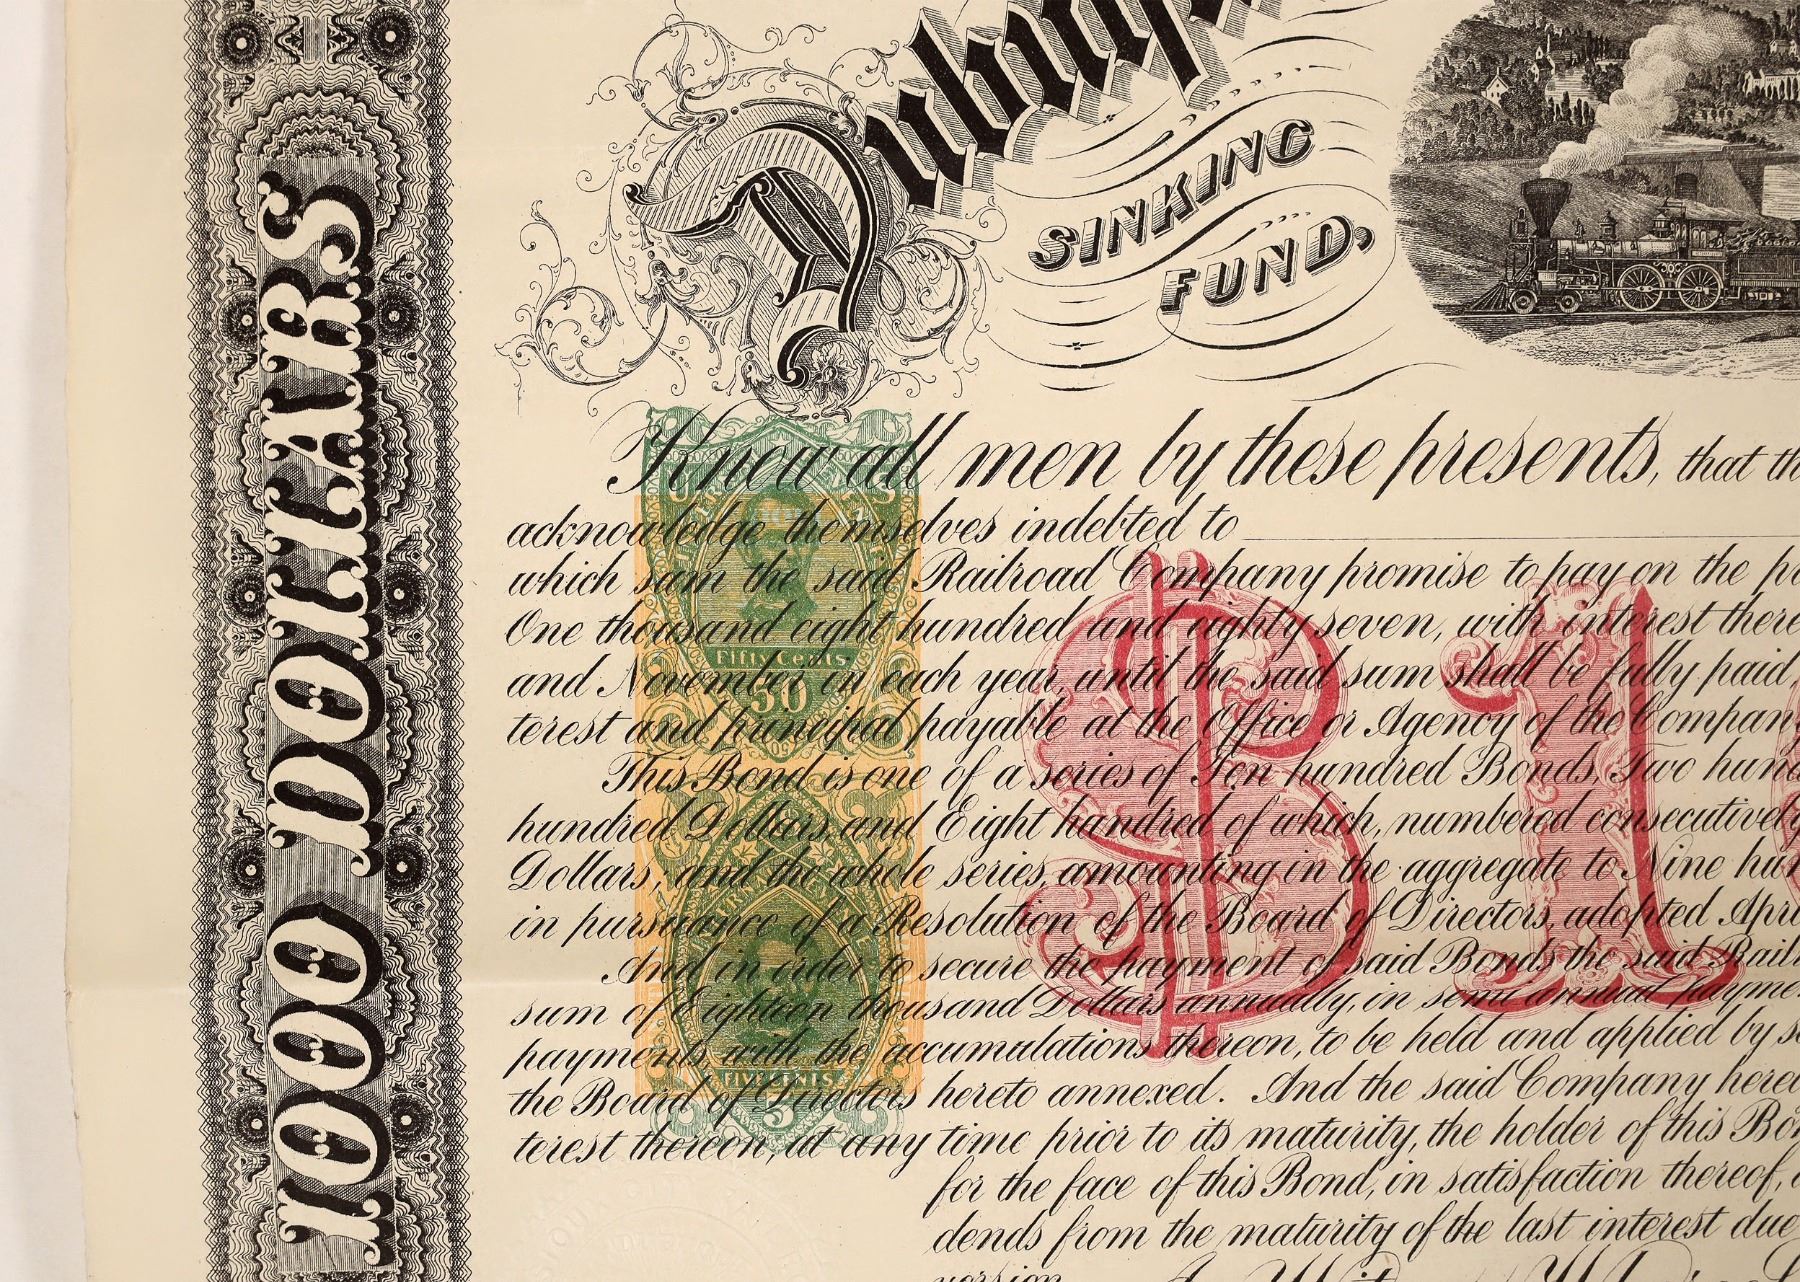 1000 DOLLARS
SINKING
FUND,
Know all men by these presents, that
acknowledge themselves indebted to
which sum the said Railroad Company promise to pay on the
One thousand eight hundred and eighty seven, with interest
and November in each year, until the said sum shall be fully paid,
terest and principal payable at the Office or Agency of the Company
This Bond is one of a series of Ten hundred Bonds, Two
hundred Dollars, and Eight hundred of which, numbered consecutively
Dollars, and the whole series, amounting in the aggregate to Nine
in pursuance of a Resolution of the Board of Directors, adopted
And in order to secure the payment of said Bonds the said
sum of Eighteen thousand Dollars annually, in semi annual
payments, with the accumulations thereon, to be held and applied by
the Board of Directors hereto annexed. And the said Company
terest thereon, at any time prior to its maturity, the holder of this
for the face of this Bond, in satisfaction thereof,
dends from the maturity of the last interest due
version.
Fifty Cents
50
FIVE CENTS
5
$1